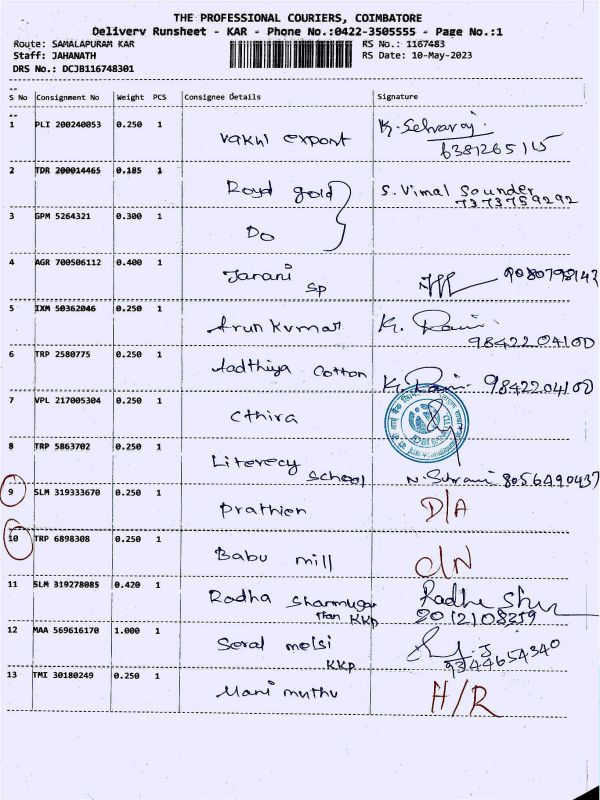 THE PROFESSIONAL COURIERS, COIMBATORE
Delivery Runsheet - KAR - Phone No.:0422-3505555 - Page No.:1
Route: SAMALAPURAM KAR RS No.: 1167483
Staff: JAHANATH RS Date: 10-May-2023
DRS No.: DCJB116748301
S No Consignment No Weight PCS Consignee Details Signature
1 PLI 200240053 0.250 1 Vakul export K. Selvaraj
6381265115
2 TDR 200014465 0.185 1 Royd gold S. Vimal Sounder
7373759292
3 GPM 5264321 0.300 1 Do
4 AGR 700506112 0.400 1 Jarani 9080798143
SP
5 IXM 50362046 0.250 1 Arun Kumar K. Rani
9842204100
6 TRP 2580775 0.250 1 Aadthiya Cotton K. Rani 9842204100
7 VPL 217005304 0.250 1 Cthira
8 TRP 5863702 0.250 1 Literecy
School 8056490437
9 SLM 319333670 0.250 1 Prathien D/A
10 TRP 6898308 0.250 1 Babu mill C/N
11 SLM 319278085 0.420 1 Radha Sharmugar
KKP
12 MAA 569616170 1.000 1 Seral melsi
KKP 9344654340
13 TMI 30180249 0.250 1 Mani muthu H/R